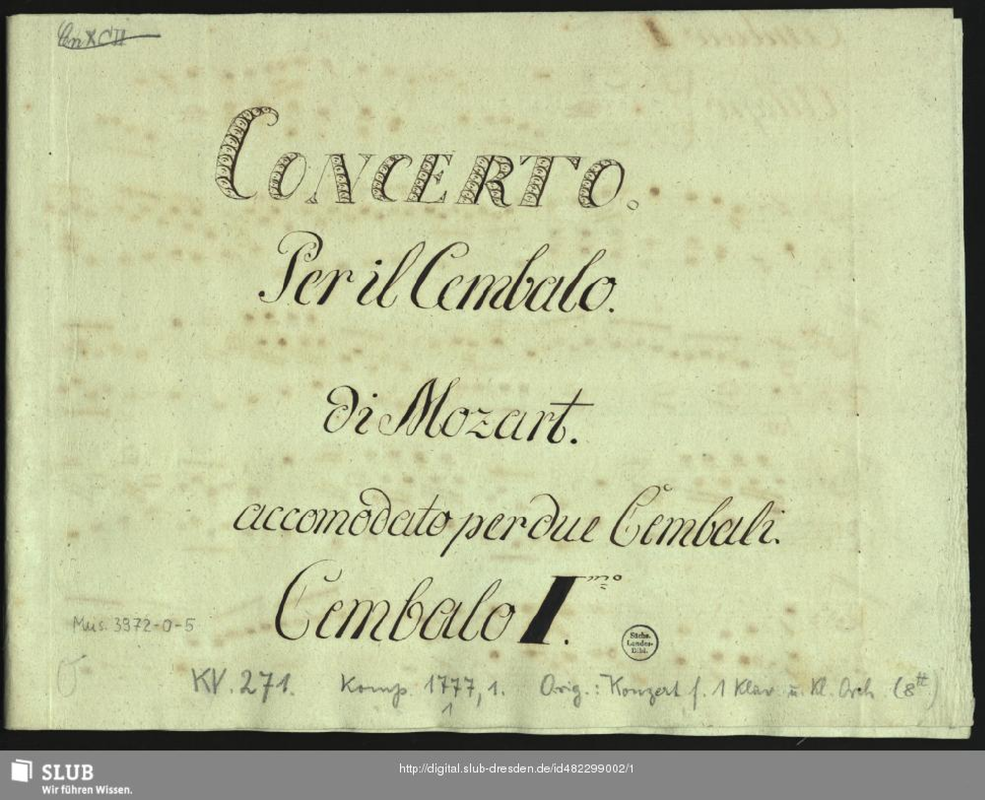 CONCERTO.
Per il Cembalo.
di Mozart.
accomodato per due Cembali.
Cembalo I.mo
Mus. 3972-O-5
Sächs.
Landes-
Bibl.
KV. 271. Komp. 1777, 1. Orig.: Konzert f. 1 Klav u. Kl. Orch (8tt)
SLUB
Wir führen Wissen.
http://digital.slub-dresden.de/id482299002/1